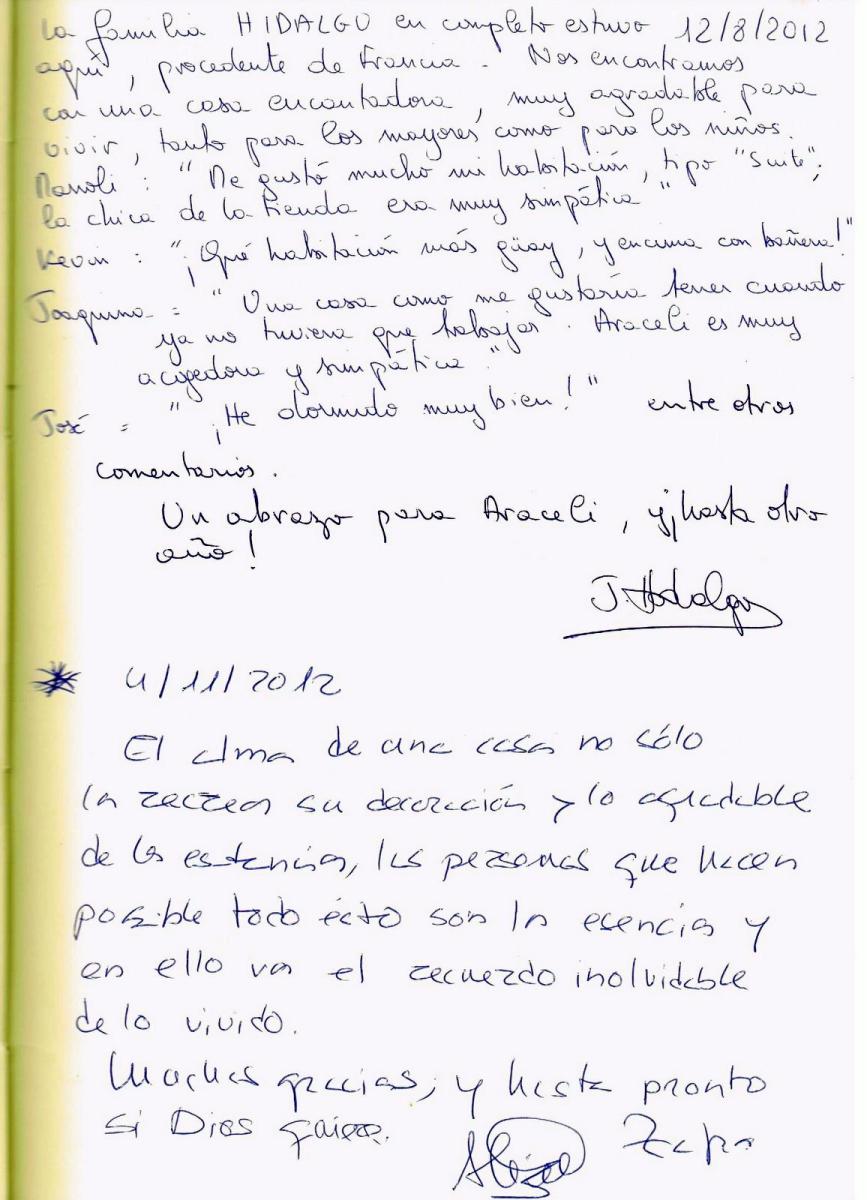 La familia HIDALGO en completo estuvo 12/8/2012
aquí, procedente de Francia. Nos encontramos
con una casa encantadora, muy agradable para
vivir, tanto para los mayores como para los niños.
Manoli : "Me gustó mucho mi habitación, tipo "Suite";
la chica de la tienda era muy simpática"
Kevin : "¡Qué habitación más güay, y encima con bañera!"
Joaquina = "Una casa como me gustaría tener cuando
ya no tuviera que trabajar. Araceli es muy
acogedora y simpática."
José = "¡He dormido muy bien!" entre otros
comentarios.
Un abrazo para Araceli, y ¡hasta otro
año!
J. Hidalgo
4/11/2012
El alma de una casa no sólo
la recrea su decoración y lo agradable
de la estancia, las personas que hacen
posible todo ésto son la esencia y
en ello va el recuerdo inolvidable
de lo vivido.
Muchas gracias, y hasta pronto
si Dios quiere.